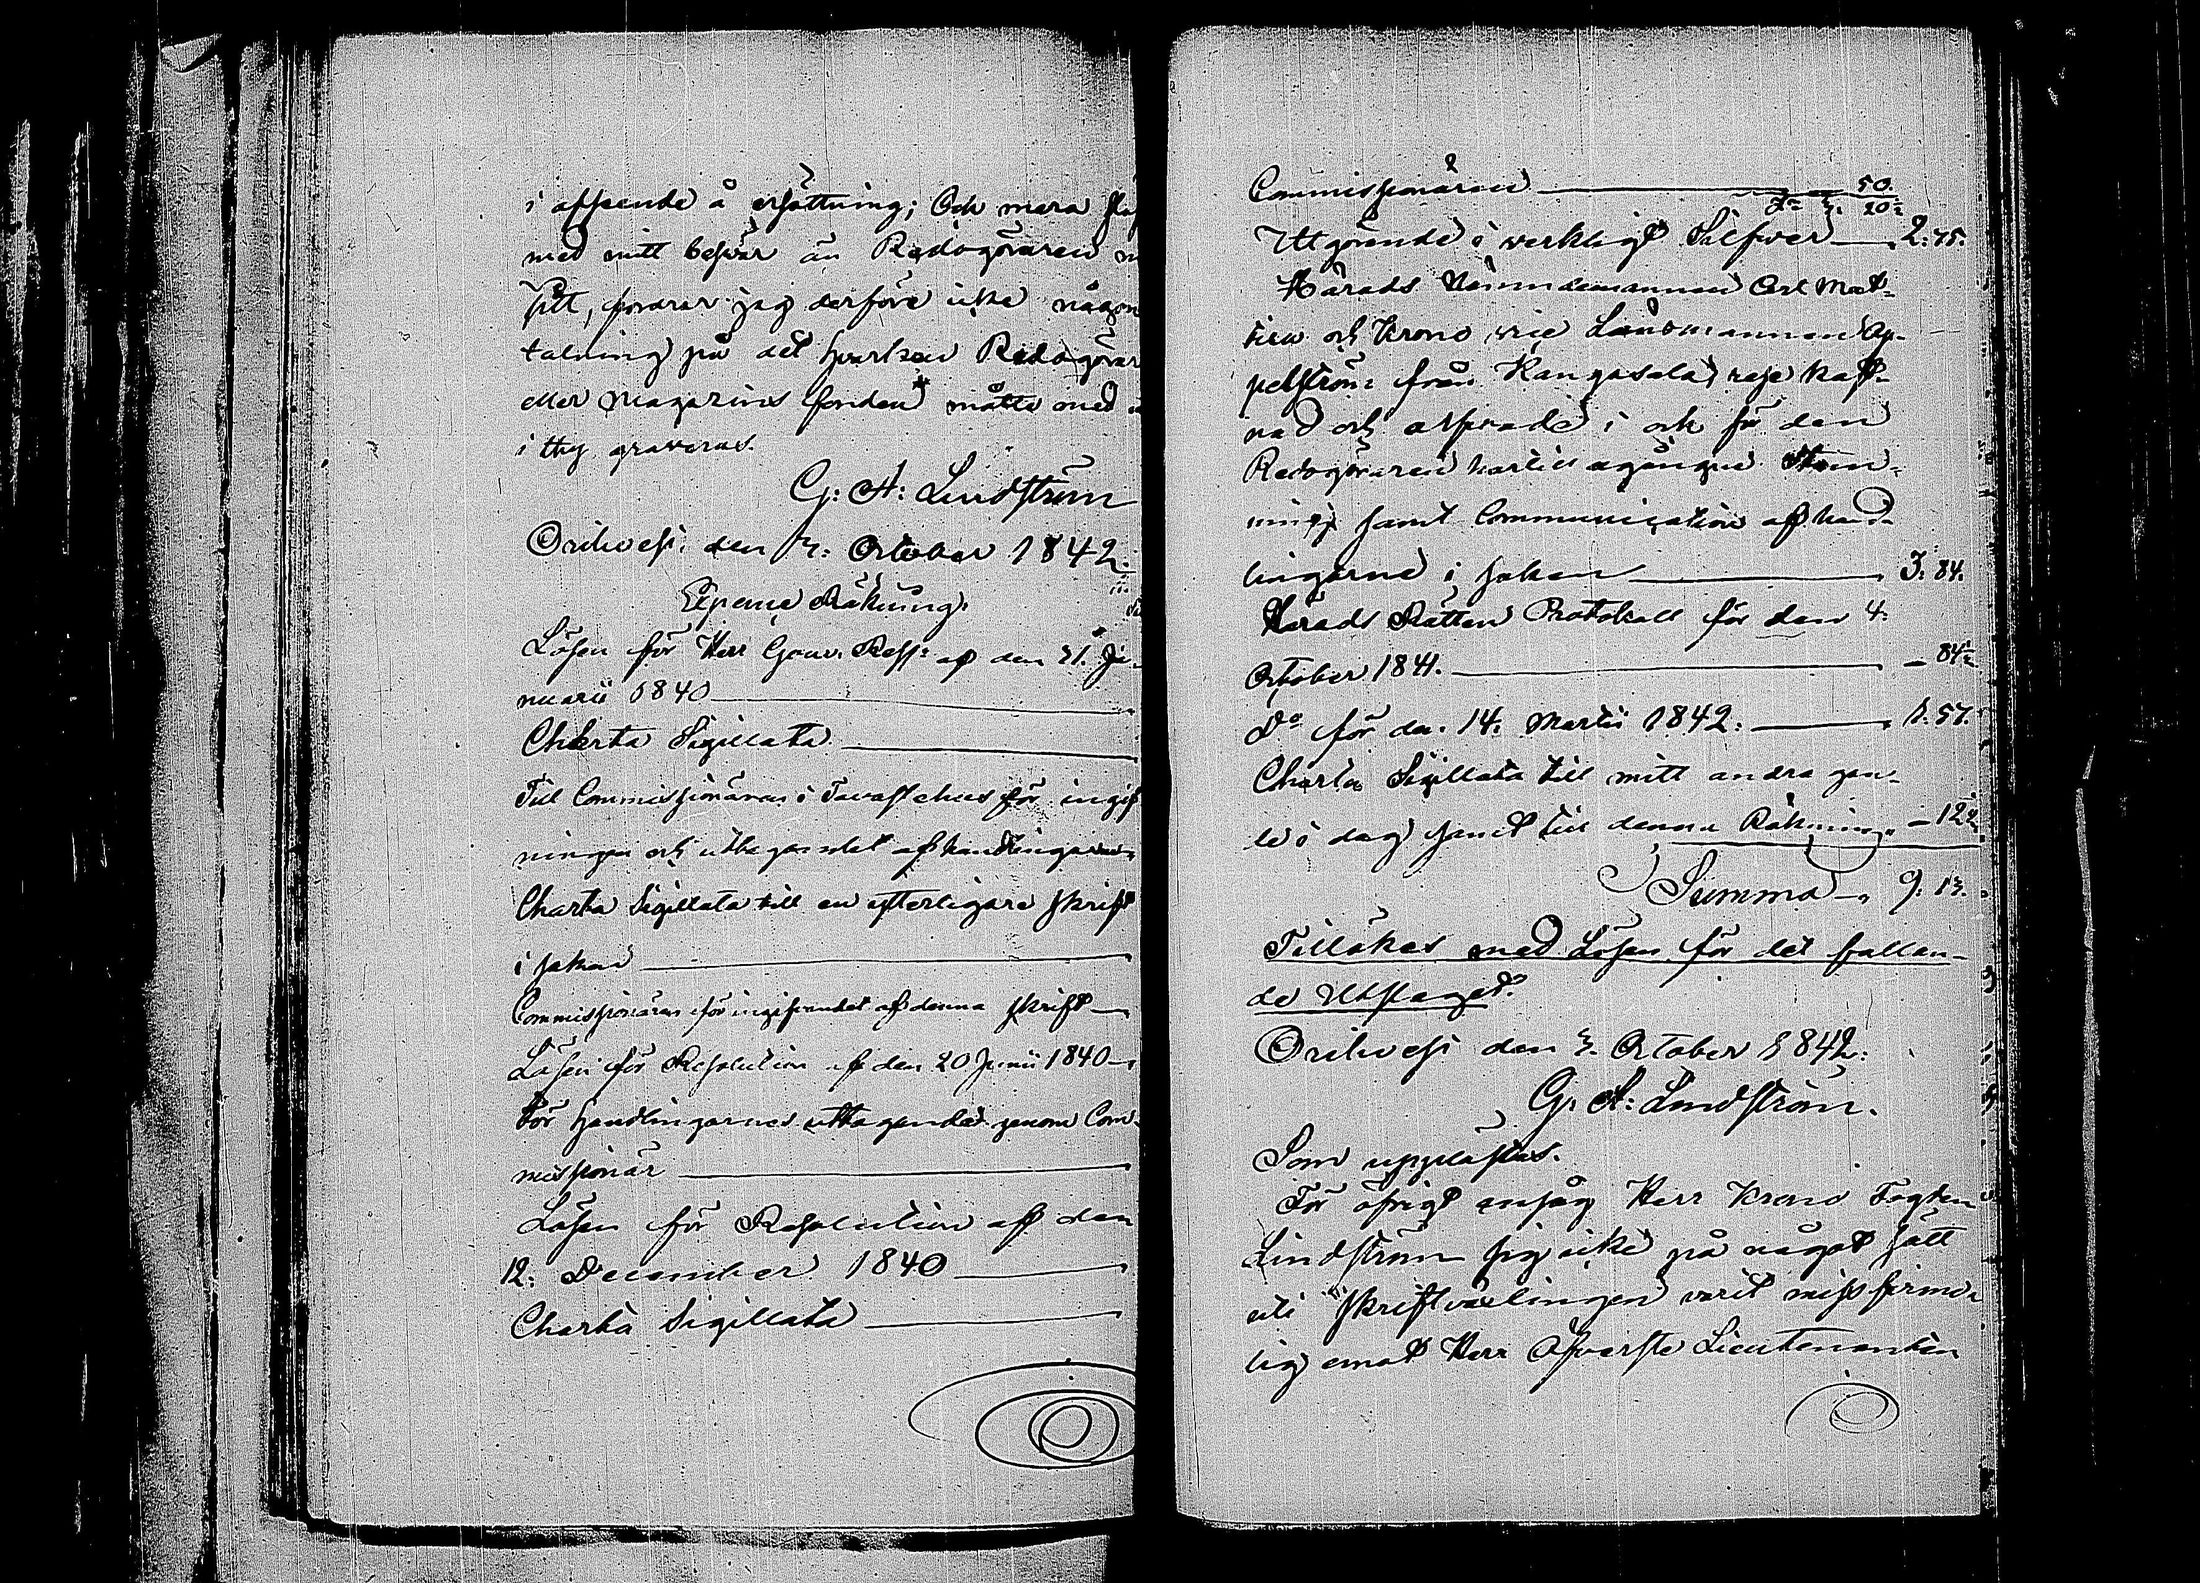 i afseende å ersättning; Och mera
med mitt besvär än Redogöraren
sitt, fordrar jag derföre icke någon
talning på det hvarken Redogörar
eller Magazins fonden måtte med
i thy graveras.
G: A: Lindström
Orihvesi den 3. October 1842.
Expens Räkning.
Lösen för Herr Gouv. Ress: af den 31. Ja-
nuarii 1840
Charta Sigillata
Till Commissionären i Tavastehus för ingif
ningen och uttagandet af handlingarne
Charta Sigillata till en ytterligare skrift
i saken
Commissionären för ingifvandet af denna skrift
Lösen för Resolution af den 20 Junii 1840
För handlingarnes uttagande genom Com-
missionär
Lösen för Resolution af den
12. December 1840
Charta Sigillata
Commissionären 50.
20
Utgörande i verkligt Silfwer 2: 75.
Härads Nämndemannen Carl Mat-
tien och Krono vice Länsmannen Ap-
pelström från Kangasala, rese kost-
nad och arfvode i och för den
Redogöraren härtill ägångne Stäm-
ning samt Communication af hand-
lingarne i saken 3. 84.
Härads Rättens Protokoll för den 4.
October 1841. — 84½
Do för den 14. Martii 1842. 1. 57.
Charta Sigillata till mitt andra gen-
le i dag samt till denna Räkning. — 12½
Summa 9. 13.
Tillökes med Lösen för det fallan-
de Utslaget.
Orihvesi den 3. October 1842.
G. A: Lindström.
Som upplästes.
För öfrigt ansåg Herr Krono Fogden
Lindström sig icke på något sätt
uti skriftväxlingen varit missfirme-
lig emot Herr Öfverste Lieutenanten